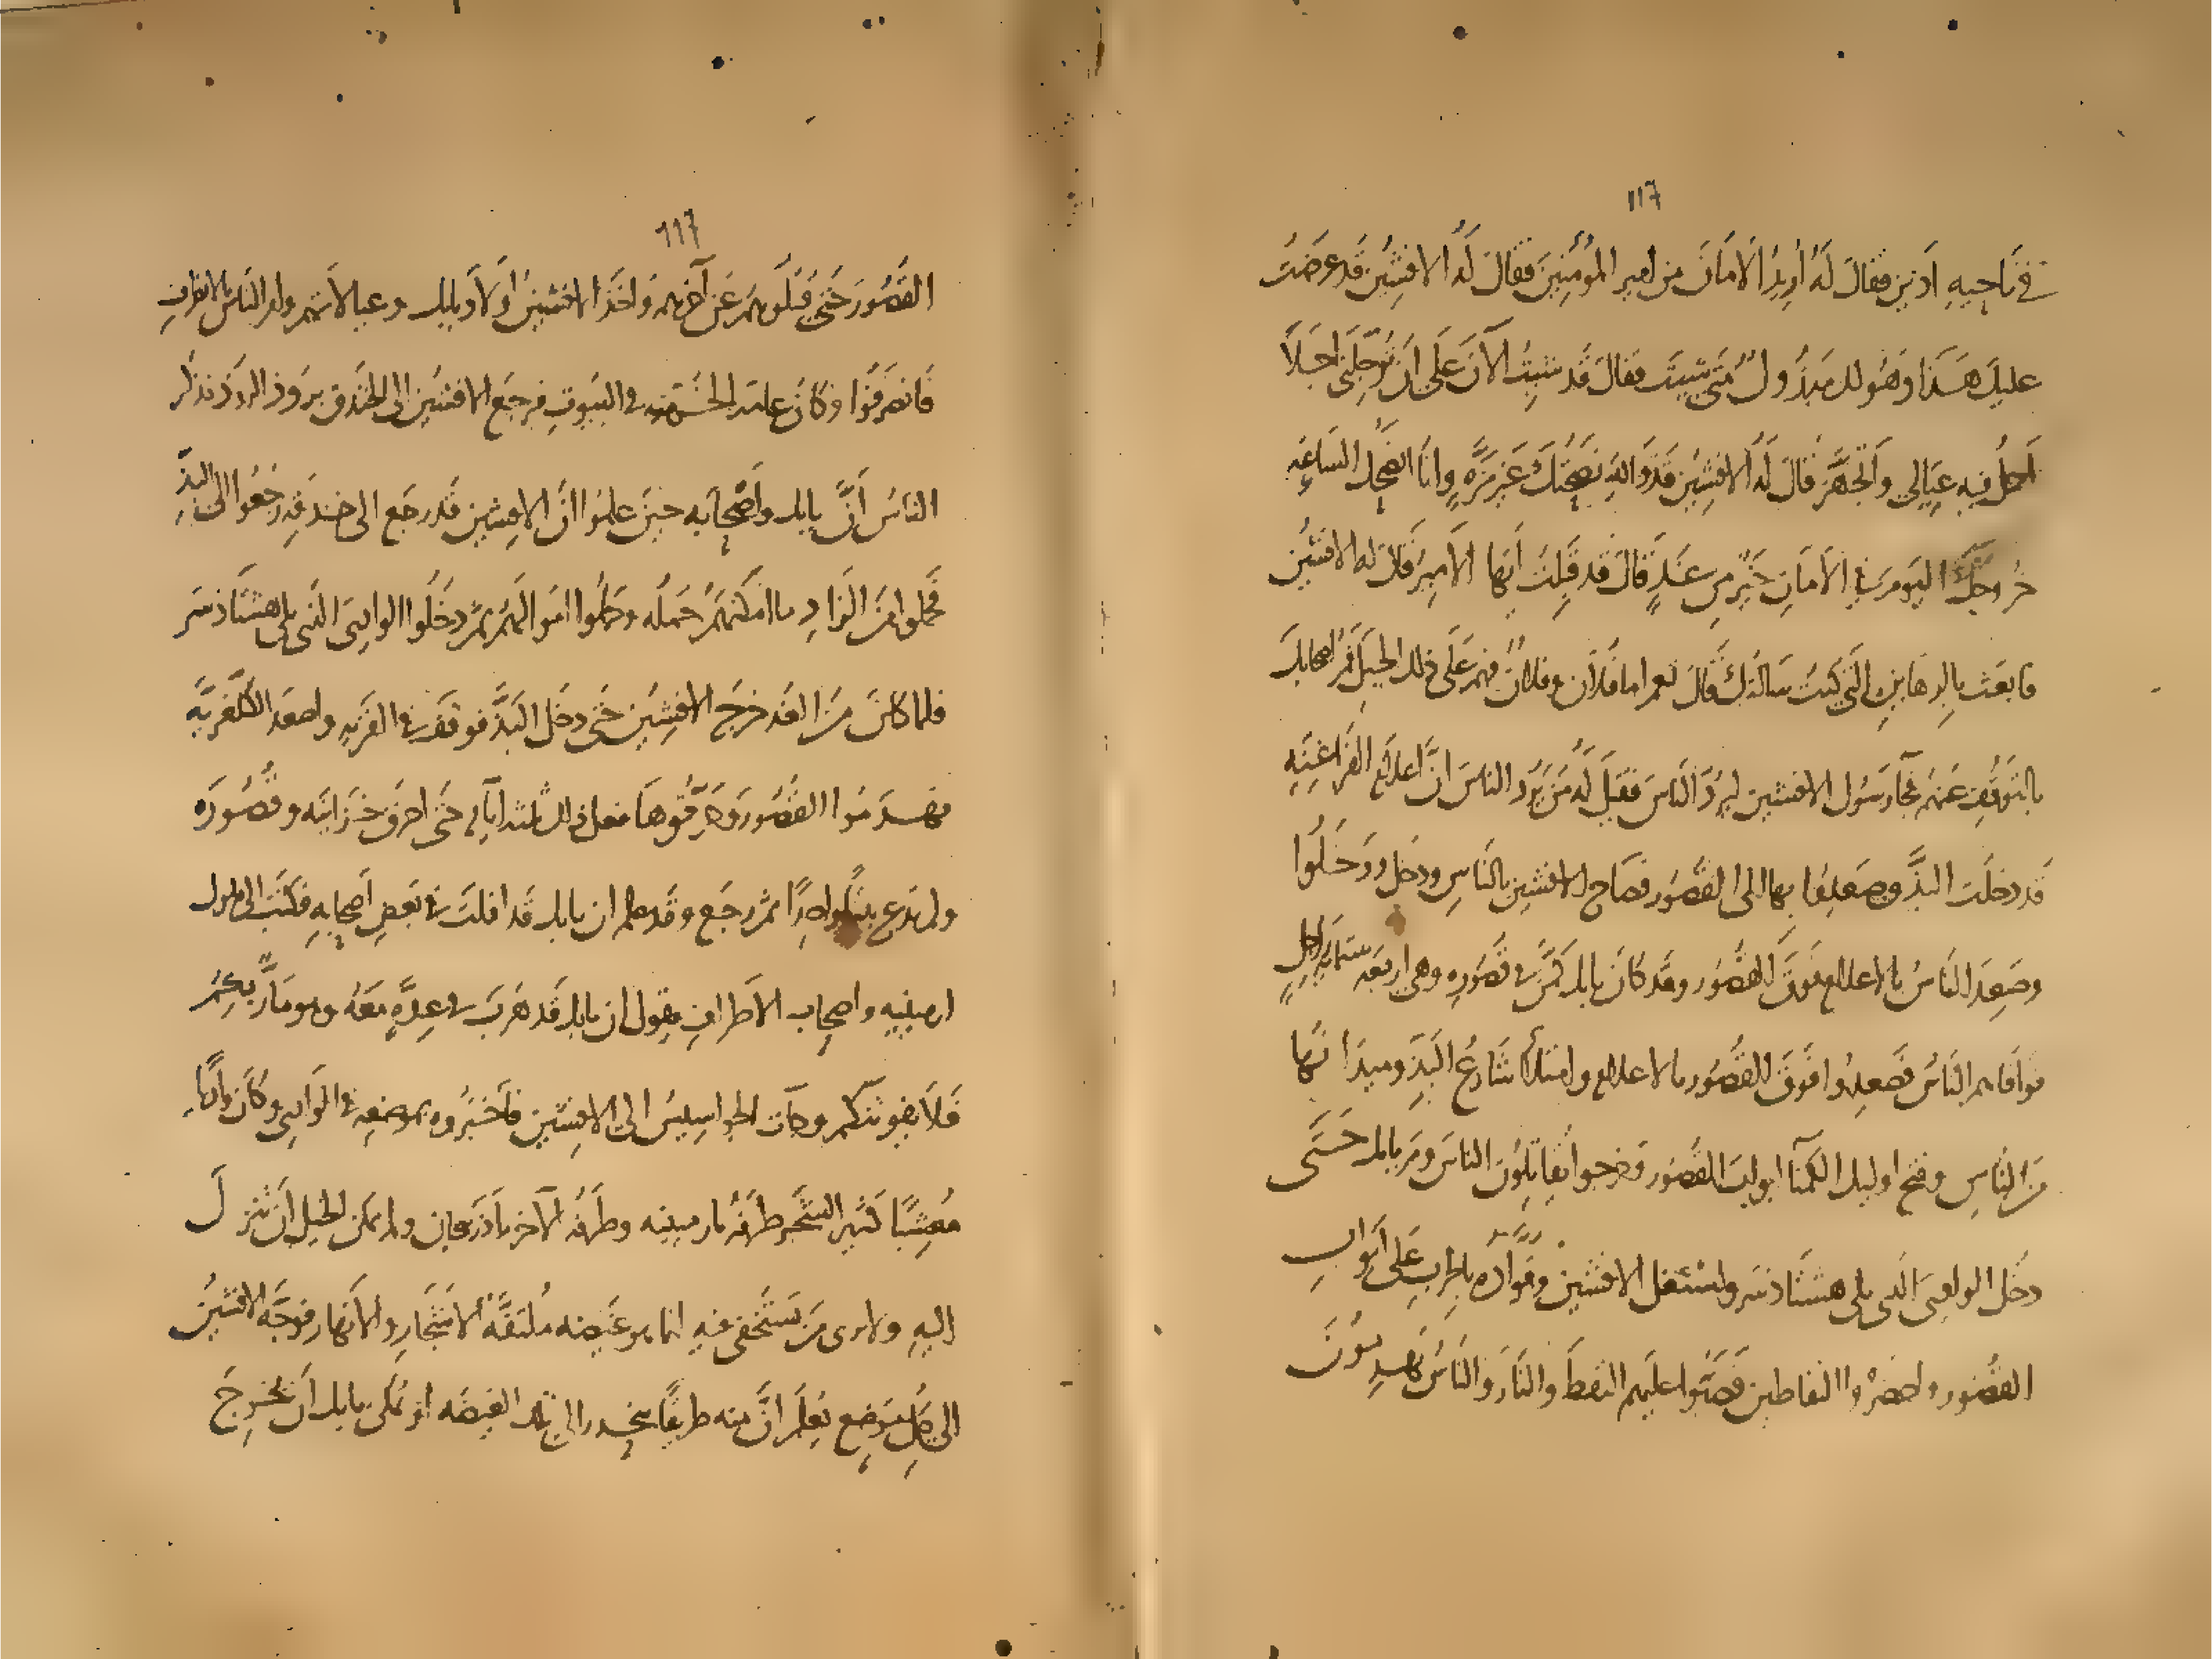 ١١٦
في ناحيه اذين فقال لَه اُريدُ الاَمانَ من امير المؤمنِينَ فقال لَهُ الافشِين قَد عرَضتُ
عليكَ هَذا وَهُو لك مبذُول متى شيتَ فقال قَد شيتُ الآنَ عَلى ان تُؤجّلَني اجَلاً
احملُ فيه عيَالي واَتجهَّز فقال لَهُ الافشِين قَدْ وَاللهِ نصَحتُكَ غيرَ مَرّةٍ وانَا انصَحُك السَاعَه
خروجُكَ اليَومَ في الاَمانِ خَيرٌ من غَدٍ قَالَ قَد قَبِلتُ اَيّها الاَمِيرُ قَالَ له الافشِين
فابعَث بالرهَاينِ التي كنتُ سَالتُكَ قَالَ نعم اما فُلاَن وفلانٌ فهم عَلى ذلك الجبل فمُر اصحابكَ
بالتوقُف عَنهُم فجآ رَسُول الافشين ليرُدَّ النَاسَ فقيلَ لَهُ مَن يَرُد الناسَ انَّ اعلامَ الفَراغنَه
قَد دخلَت البذَّ وصَعِدُوا بها الى القُصُور فصَاحَ الافشين بالنَاسِ ودخل ودَخَلُوا
وصَعِدَ الناسُ بالاعلام فوقَ القُصُور وقَد كانَ بابك كمَّن في قصُورِه وهي اربعَه ستمايه رجلٍ
فوافاهم النَاسُ فصَعِدُوا فَوقَ القُصُور بالاعلام وامتلأ شَارعُ البَذّ وميدَانُها
مَن النَاسِ وفتح اوليك الكمنآ ابوابَ القُصُور وخرجوا يُقاتِلُون الناسَ ومَر بابك حَتَّى
دخَل الوادِىَ الذي يلي هشتَاذسَر واشتغل الافشين وقوّادُه بالحربِ عَلى اَبوابِ
القصُور واحضرُوا النفاطين فَصَبُّوا عليهم النفطَ والنَارَ والنَاسُ يَهدمُونَ
١١٧
القُصُورَ حَتى قُتِلُوا عَن آخرِهم وَاخَذَ الافشين اَولاَدَ بابك وعيالاتهم وامر الناس بالانصرافِ
فانصَرفُوا وكانَ عامّة الخُرّميّه في البيُوتِ فرجَعَ الافشين الى الخندق بروذ الروذ فذكر
الناسُ انَّ بابك واصحابَه حِينَ علمُوا انَّ الافشين قَد رجَع الى خندَقِه رجَعُوا الى البَذّ
فحملوا منَ الزاد ما امكنَهُم حَملُه وحملُوا اموالَهُم ثم دخَلُوا الوادِىَ الذي يلي هشتَاذسَر
فلما كانَ منَ الغَد خرجَ الافشِينُ حَتى دخَل البَذَّ فوقفَ في القريه واصعَدَ الكلغريَّه
فهدمُوا القُصُورَ وحرّقوهَا ففعل ذلك ثلثة ايآم حَتى احرقَ خزَاينَه وقُصُورَه
ولم يَدَع بيتًا واحِدًا ثم رجَع وقَد علم ان بابك قد افلَتَ في بَعضِ اَصحابِه فكَتبَ الى ملوك
ارمينيه واصحابِ الاَطرافِ يقول ان بابك قَد هَربَ في عِدّةٍ مَعَه وهو مَارٌّ بكُم
فَلاَ يفوتنّكم وجآت الجواسيسُ الى الافشين فاخبَرُوه بموضعِه في الوَادي وكَان وَادِيًا
مُعشبًا كثير الشجَر طَرفُه بارمينيه وطَرفُه الاخر باذرَبيجان ولم يمكن الخيل اَن تنزلَ
اليهِ ولا يرى مَن يَستَخفى فيه انما هو غَيضَه مُلتفَّه الاَشجَار والانهار فوجَّه الافشِينُ
الى كُلِّ مَوضِع يعلَم اَنَّ منه طريقًا ينحدر الى تلك الغيضَه او يُمكن بابك اَن يخرجَ